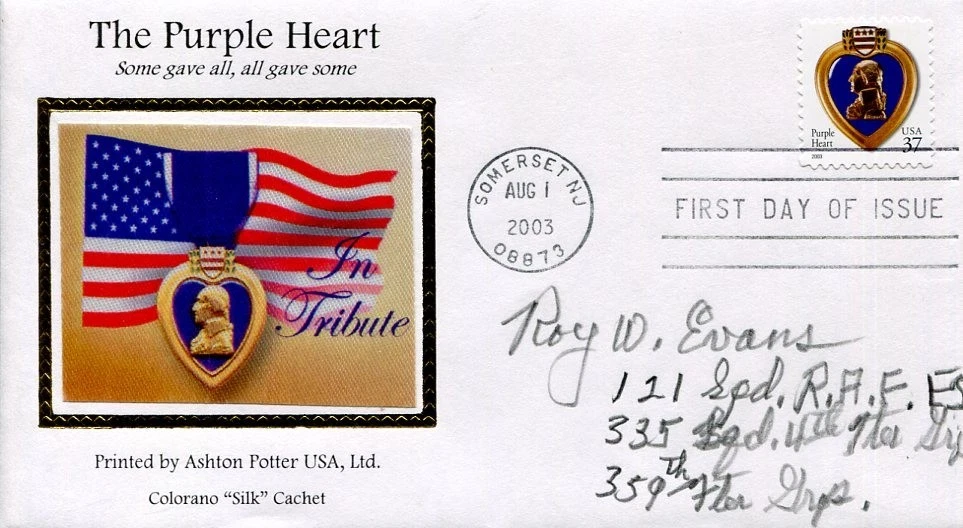 The Purple Heart
Some gave all, all gave some
In
Tribute
Printed by Ashton Potter USA, Ltd.
Colorano “Silk” Cachet
Purple
Heart
2003
USA
37
SOMERSET NJ
AUG 1
2003
08873
FIRST DAY OF ISSUE
Roy W. Evans
121 Sqd. R.A.F. ES
335 Sqd. 4th Fter Grp
359th Fter Grp.